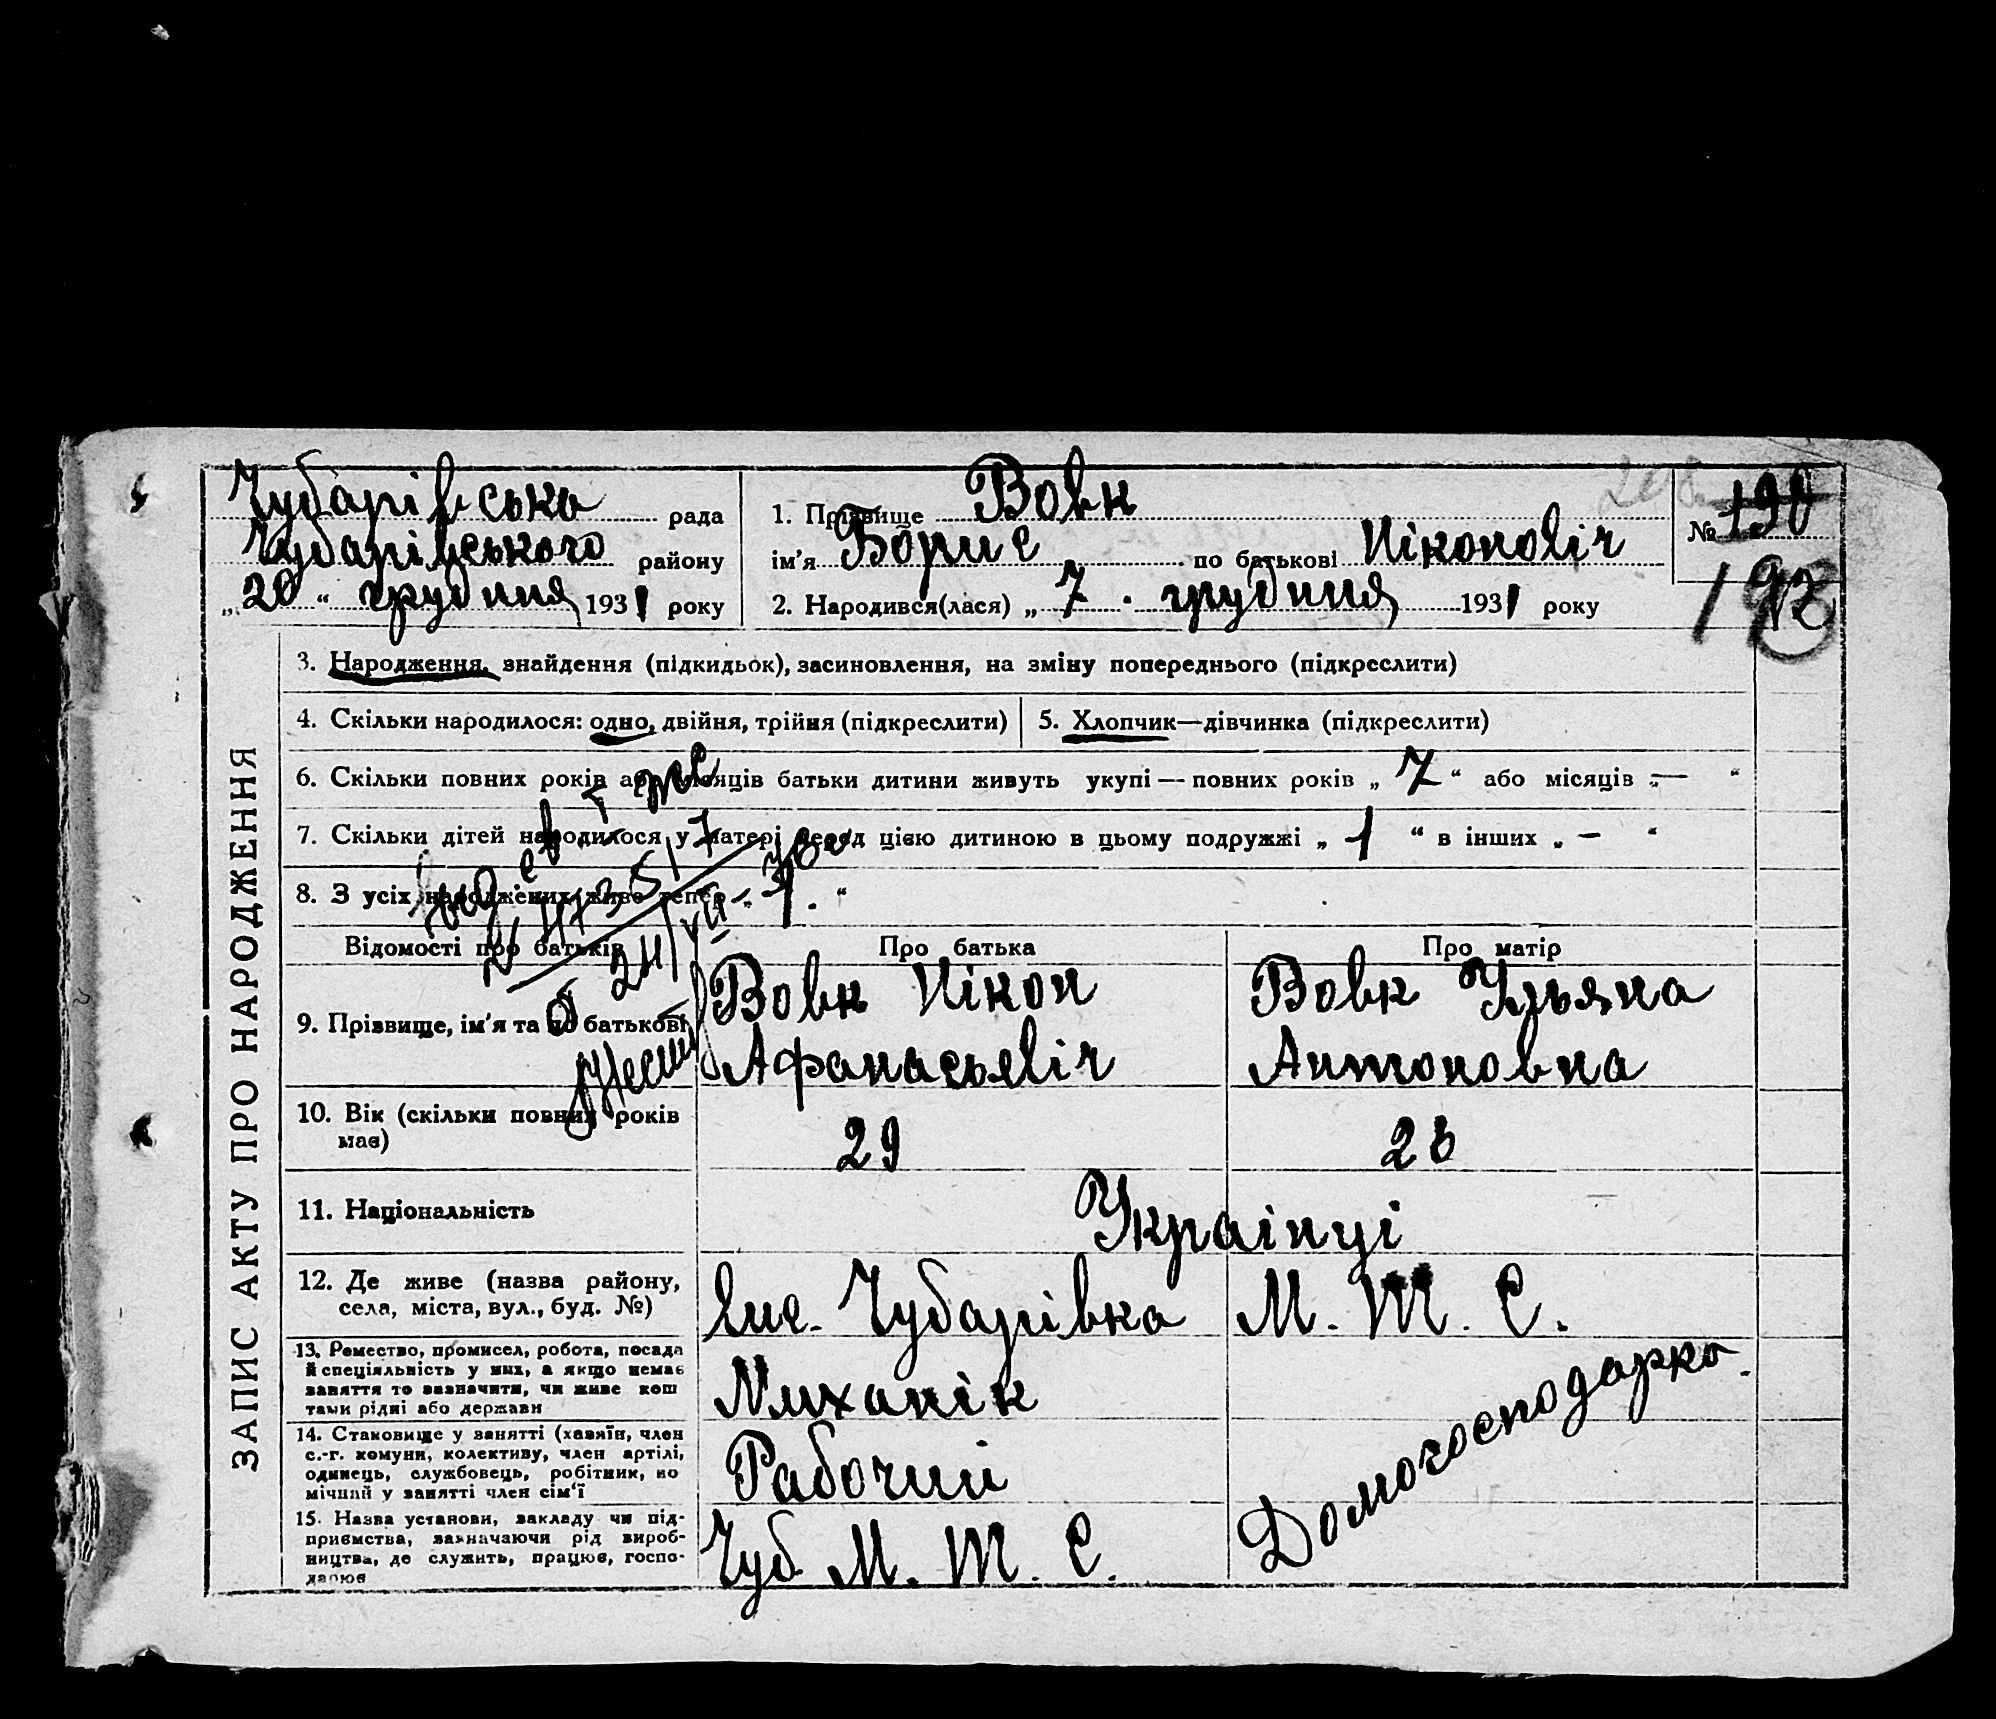 Чубарівська рада
Чубарівського району
„20“ грудння 1931 року
1. Прізвище Вовк
ім’я Борис по батькові Ніконовіч
2. Народився(лася) „7. грудння 1931 року
№ 190
193
ЗАПИС АКТУ ПРО НАРОДЖЕННЯ
3. Народження, знайдення (підкидьок), засиновлення, на зміну попереднього (підкреслити)
4. Скільки народилося: одно, двійня, трійня (підкреслити)
5. Хлопчик—дівчинка (підкреслити)
6. Скільки повних років або місяців батьки дитини живуть укупі — повних років „7“ або місяців „—“
7. Скільки дітей народилося у матері перед цією дитиною в цьому подружжі „1“ в інших „—“
8. З усіх народжених живе тепер „1.“
Відомості про батьків
Про батька
Про матір
9. Прізвище, ім’я та по батькові
Вовк Нікон
Афанасьевіч
Вовк Ульяна
Антоновна
10. Вік (скільки повних років
має)
29
23
11. Національність
Украінці
12. Де живе (назва району,
села, міста, вул., буд. №)
Чубарівка М. Т. С.
13. Ремество, промисел, робота, посада
й спеціяльність у них, а якщо немає
заняття то зазначити, чи живе кош
тами рідні або держави
Миханік
14. Становище у занятті (хазяїн, член
с.-г. комуни, колективу, член артілі,
одинець, службовець, робітник, по
мічний у занятті член сім’ї
Рабочий
15. Назва установи, закладу чи під-
приємства, зазначаючи рід вироб-
ництва, де служить, працює, госпо-
дарює
Чуб М. Т. С.
Домогосподарка.